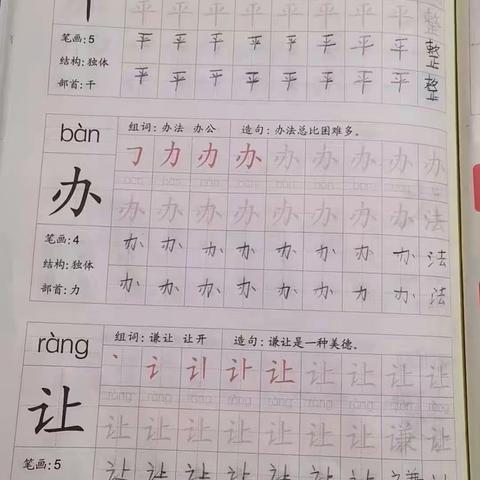 平 平 平 平 平 平 平 整
笔画:5 平 平 平 平 平 平 平 平 整
结构:独体
部首:干 平 平 平 平 平 平 平 平 整
bàn 组词:办法 办公 造句:办法总比困难多。
㇆ 力 办 办 办 办 办 办 办
bàn bàn bàn bàn bàn bàn bàn bàn
办 办 办 办 办 办 办 办 办 法
笔画:4 办 办 办 办 办 办 办 办 法
结构:独体
部首:力 办 办 办 办 办 办 力 办 法
ràng 组词:谦让 让开 造句:谦让是一种美德。
丶 讠 让 让 让 让 让 让
ràng ràng ràng ràng ràng ràng ràng ràng
让 让 让 让 让 让 让 让 谦 让
笔画:5 让 让 让 让 让 让 让 谦 让